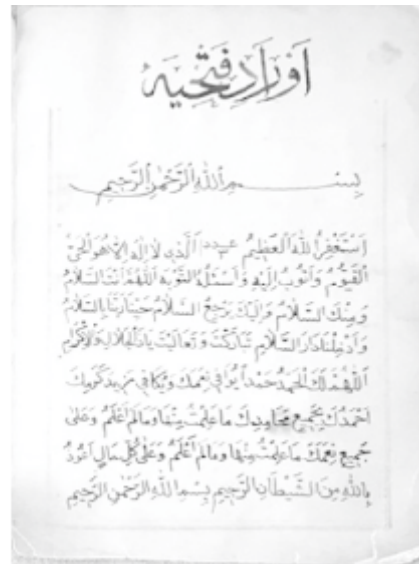 اوراد فتحیه
بسم الله الرحمن الرحيم
استغفر الله العظيم عدد الذي لا اله الا هو الحي
القيوم واتوب اليه واسئله التوبة اللهم انت السلام
ومنك السلام واليك يرجع السلام حينا ربنا بالسلام
وادخلنا دار السلام تباركت وتعاليت ياذا الجلال والاكرام
اللهم لك الحمد حمدا يوافي نعمك ويكافي مزيد كرمك
احمدك بجميع محامدك ما علمت منها ومالم اعلم وعلى
جميع نعمك ما علمت منها ومالم اعلم وعلى كل حال اعوذ
بالله من الشيطان الرجيم بسم الله الرحمن الرحيم